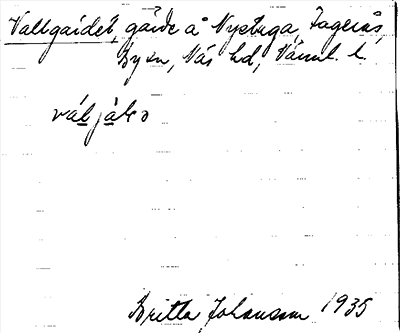 Vallgärdet, gärde å Nystuga, Fagerås,
By sn, Näs hd, Värml. l.
Britta Johansson 1935